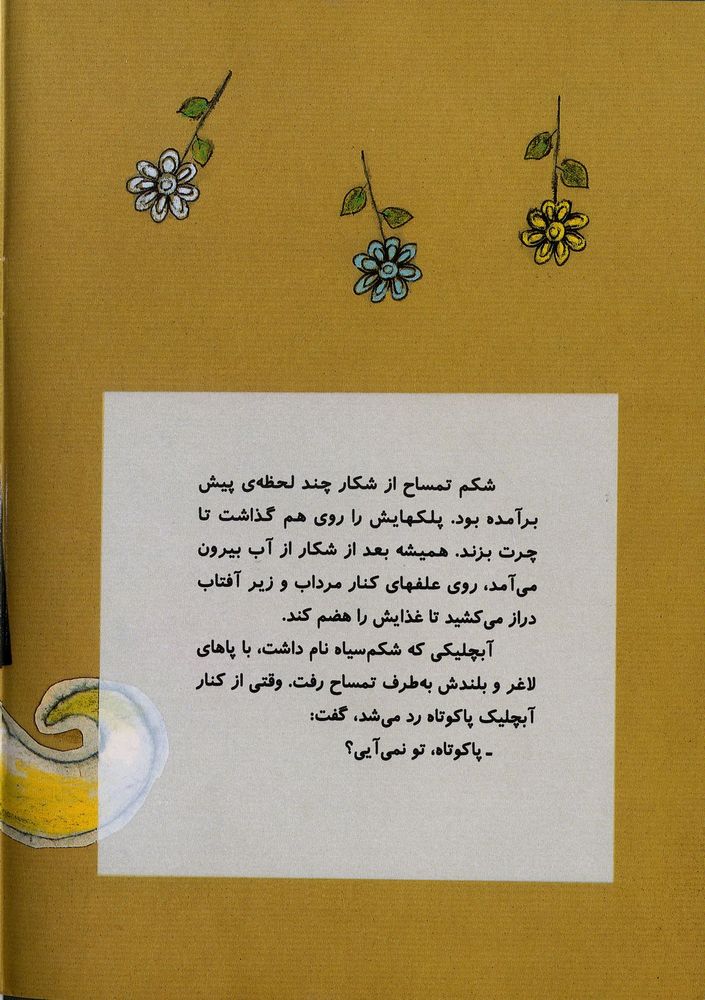 شکم تمساح از شکار چند لحظه‌ی پیش
برآمده بود. پلکهایش را روی هم گذاشت تا
چرت بزند. همیشه بعد از شکار از آب بیرون
می‌آمد، روی علفهای کنار مرداب و زیر آفتاب
دراز می‌کشید تا غذایش را هضم کند.
آبچلیکی که شکم‌سیاه نام داشت، با پاهای
لاغر و بلندش به‌طرف تمساح رفت. وقتی از کنار
آبچلیک پاکوتاه رد می‌شد، گفت:
ـ پاکوتاه، تو نمی‌آیی؟